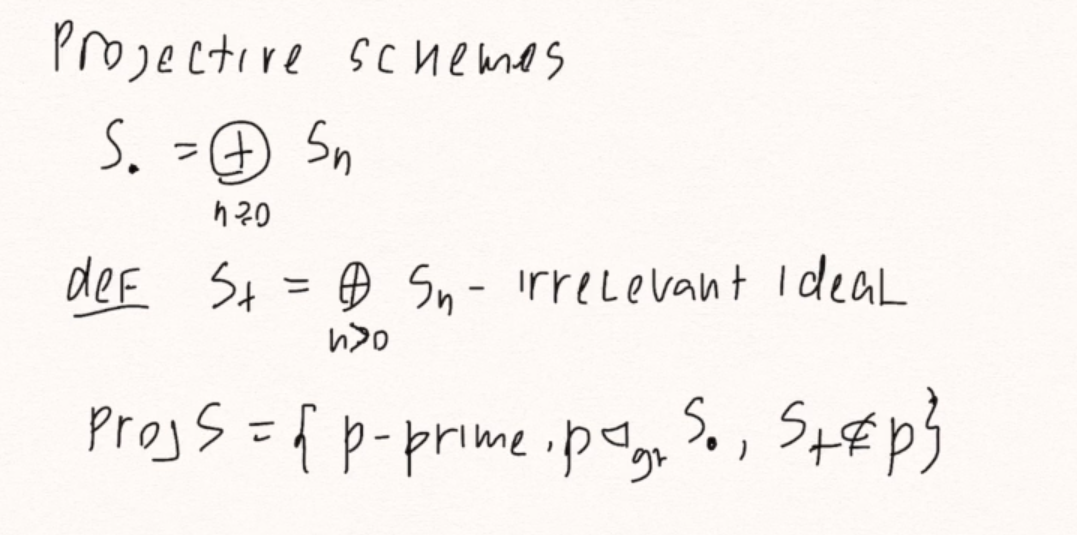 Projective schemes
S. = ⊕ Sn
n≥0
def S+ = ⊕ Sn - irrelevant ideal
n>0
Proj S = { p-prime, p ⊲gr S., S+ ⊄ p}